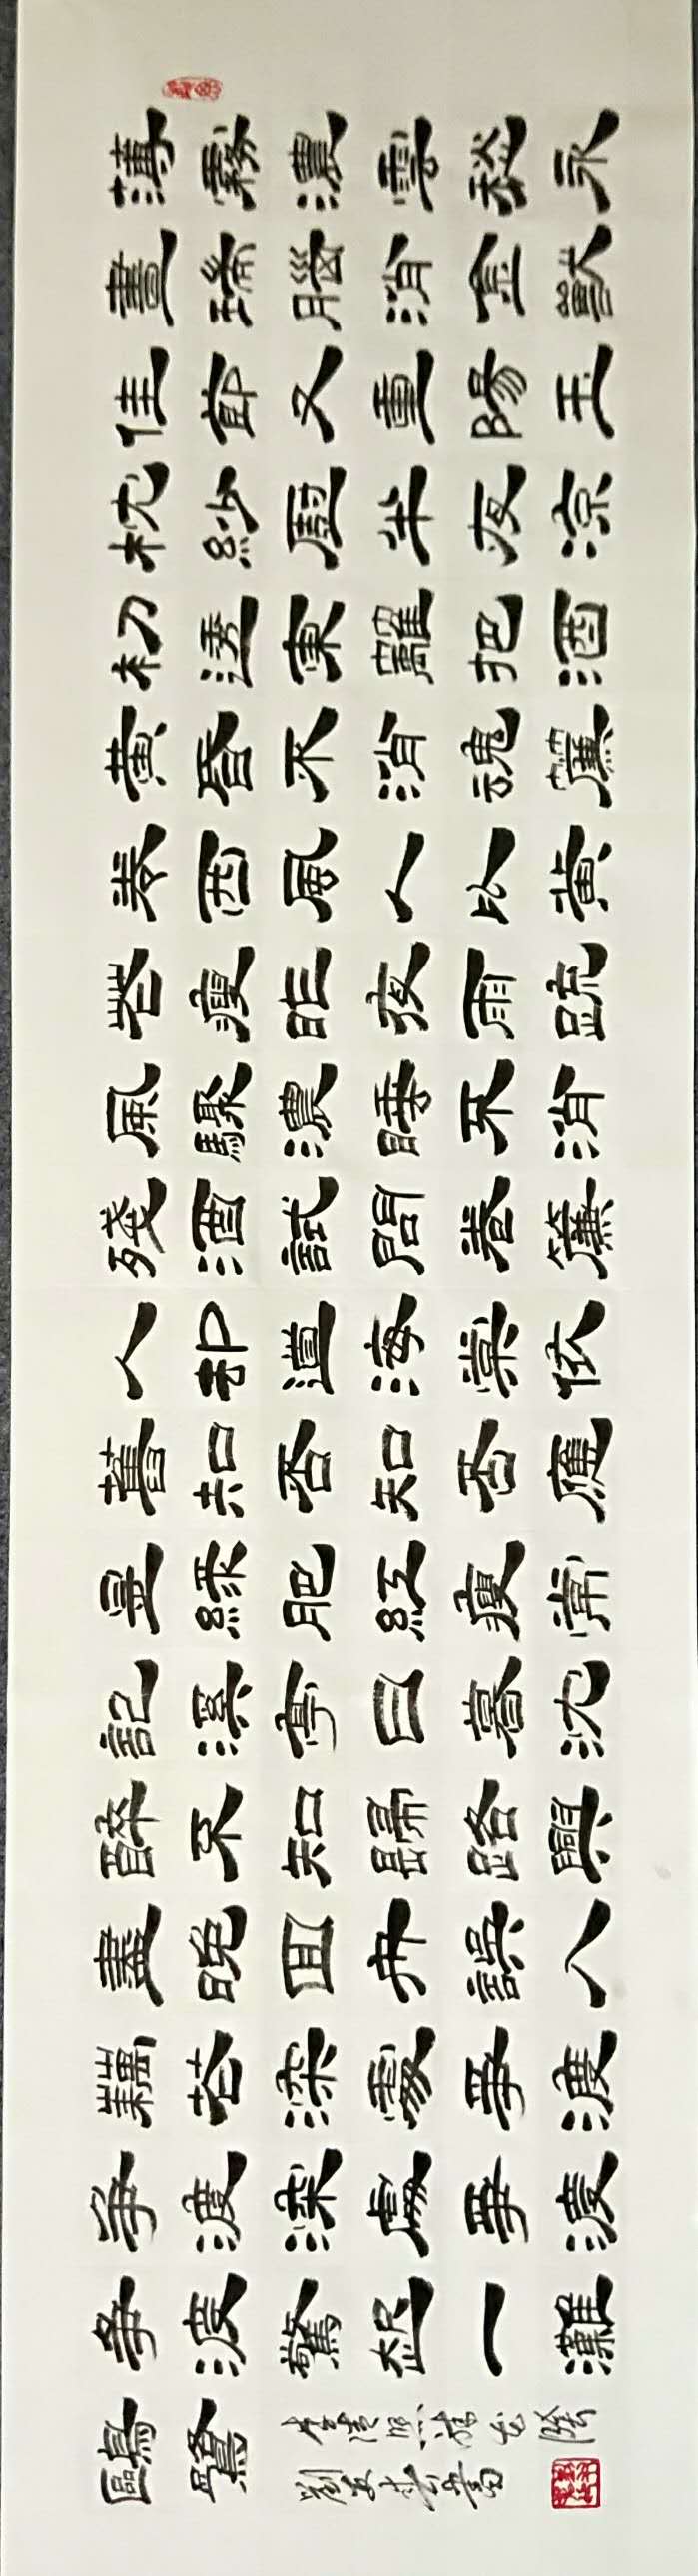 薄霧濃雲愁永
晝瑞腦消金獸
佳節又重陽玉
枕紗廚半夜涼
初透東籬把酒
黃昏不消魂簾
卷西風人比黃
花瘦昨夜雨疏
風驟濃睡不消
殘酒試問卷簾
人却道海棠依
舊知否知否應
是綠肥紅瘦常
記溪亭日暮沈
醉不知歸路興
盡晚回舟誤入
藕花深處爭渡
爭渡深處爭渡
爭渡驚起一灘
鷗鷺
李清照醉花陰
劉安書